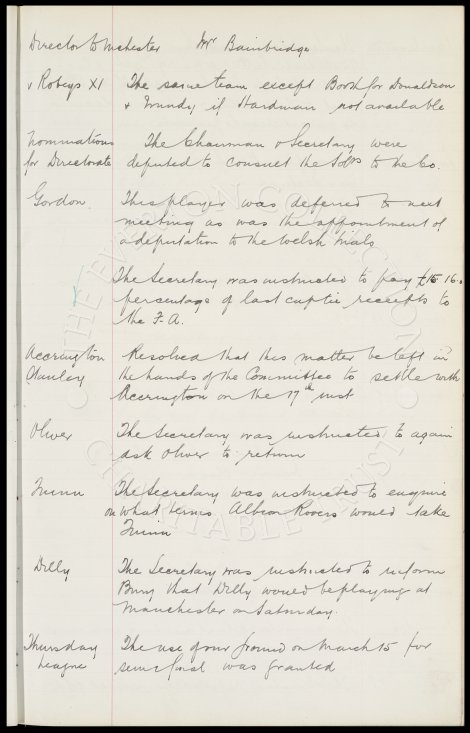 Director to Mchester Mr Bainbridge
v Robeys XI The same team except Booth for Donaldson
& Mundy if Hardman not available
Nominations The Chairman & Secretary were
for Directorate deputed to consult the Solrs to the Co.
Gordon This player was deferred to next
meeting as was the appointment of
a deputation to the Welsh trials
The Secretary was instructed to pay £16
percentage of last cuptie receipts to
the F.A.
Accrington Resolved that this matter be left in
Stanley the hands of the Committee to settle with
Accrington on the 17th inst
Oliver The Secretary was instructed to again
ask Oliver to return
The Secretary was instructed to enquire
on what terms Albion Rovers would take
Dilly The Secretary was instructed to inform
Bury that Dilly would be playing at
Manchester on Saturday.
Thursday The use of our ground on March 15 for
League semi final was granted
THE EVERTON COLLECTION
CHARITABLE TRUST